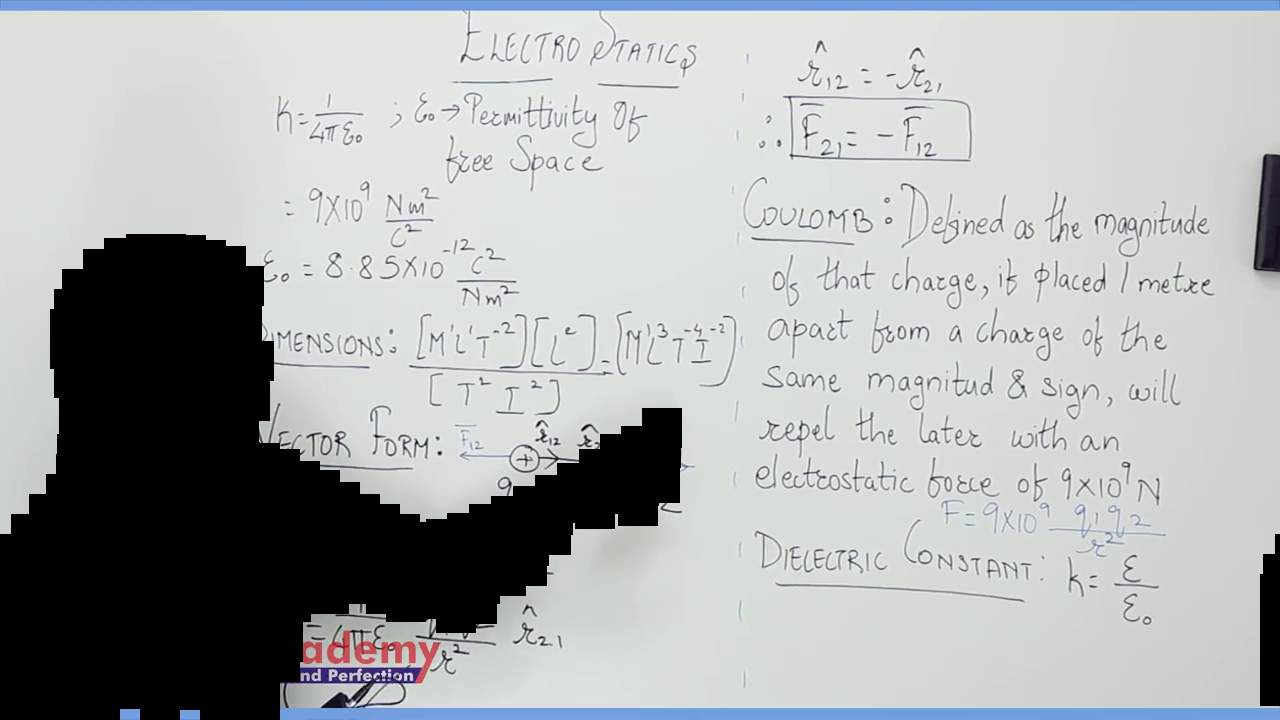 ELECTROSTATICS
K = 1/4πε₀ ; ε₀ → Permittivity Of
free Space
= 9×10⁹ Nm²/C²
ε₀ = 8.85×10⁻¹² C²/Nm²
DIMENSIONS: [M¹L¹T⁻²][L²]/[T² I²] = [M¹L³T⁻⁴I⁻²]
VECTOR FORM: F̅₁₂ + r̂₁₂
= 1/4πε₀ r² r̂₂₁
ademy
nd Perfection
r̂₁₂ = -r̂₂₁
∴ F̅₂₁ = -F̅₁₂
COULOMB: Defined as the magnitude
of that charge, if placed 1 metre
apart from a charge of the
same magnitud & sign, will
repel the later with an
electrostatic force of 9×10⁹N
F = 9×10⁹ q₁q₂/r²
DIELECTRIC CONSTANT: k = ε/ε₀